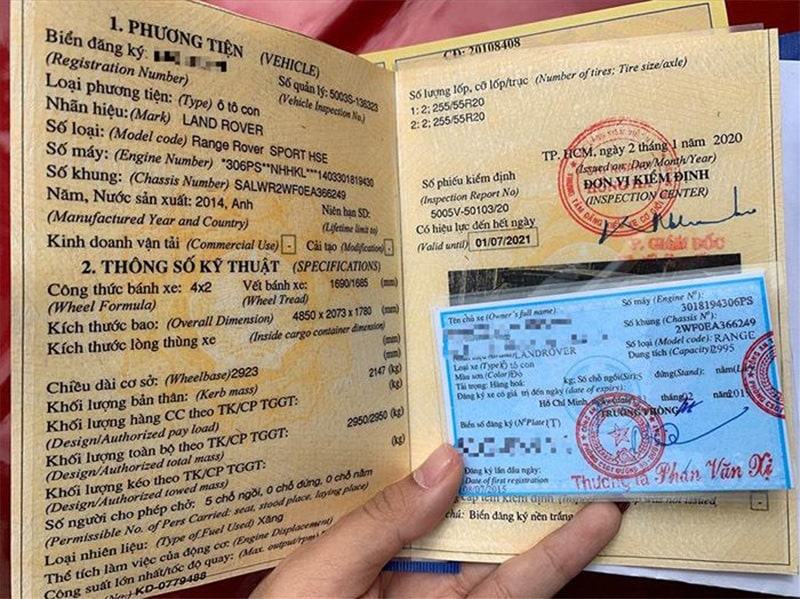 1. PHƯƠNG TIỆN (VEHICLE)
Biển đăng ký:
(Registration Number) Số quản lý: 5003S-136323
Loại phương tiện: (Type) ô tô con (Vehicle Inspection No.)
Nhãn hiệu: (Mark) LAND ROVER
Số loại: (Model code) Range Rover SPORT HSE
Số máy: (Engine Number) *306PS**NHHKL***1403301819430
Số khung: (Chassis Number) SALWR2WF0EA366249
Năm, Nước sản xuất: 2014, Anh Niên hạn SD:
(Manufactured Year and Country) (Lifetime limit to)
Kinh doanh vận tải (Commercial Use) - Cải tạo (Modification) -
2. THÔNG SỐ KỸ THUẬT (SPECIFICATIONS)
Công thức bánh xe: 4x2 Vết bánh xe: 1690/1685 (mm)
(Wheel Formula) (Wheel Tread)
Kích thước bao: (Overall Dimension) 4850 x 2073 x 1780 (mm)
Kích thước lòng thùng xe (Inside cargo container dimension)
(mm)
Chiều dài cơ sở: (Wheelbase) 2923 (mm)
Khối lượng bản thân: (Kerb mass) 2147 (kg)
Khối lượng hàng CC theo TK/CP TGGT: (kg)
(Design/Authorized pay load)
Khối lượng toàn bộ theo TK/CP TGGT: 2950/2950 (kg)
(Design/Authorized total mass)
Khối lượng kéo theo TK/CP TGGT: (kg)
(Design/Authorized towed mass)
Số người cho phép chở: 5 chỗ ngồi, 0 chỗ đứng, 0 chỗ nằm
(Permissible No. of Pers Carried: seat, stood place, laying place)
Loại nhiên liệu: (Type of Fuel Used) Xăng
Thể tích làm việc của động cơ: (Engine Displacement)
Công suất lớn nhất/tốc độ quay: (Max. output/rpm)
KD-0779488
CD: 20108408
Số lượng lốp, cỡ lốp/trục (Number of tires; Tire size/axle)
1: 2; 255/55R20
2: 2; 255/55R20
TP. HCM, ngày 2 tháng 1 năm 2020
(Issued on: Day/Month/Year)
Số phiếu kiểm định ĐƠN VỊ KIỂM ĐỊNH
(Inspection Report No) (INSPECTION CENTER)
5005V-50103/20
Có hiệu lực đến hết ngày
(Valid until) 01/07/2021
P. GIÁM ĐỐC
Tên chủ xe (Owner's full name) Số máy (Engine Nº):
3018194306PS
Số khung (Chassis Nº):
2WF0EA366249
LANDROVER Số loại (Model code): RANGE
Loại xe (Type) Ô tô con Dung tích (Capacity) 2995
Màu sơn (Color) Đỏ
Tải trọng: Hàng hoá: kg; Số chỗ ngồi (Sit): 5 đứng (Stand): nằm
Đăng ký xe có giá trị đến ngày (date of expiry):
Hồ Chí Minh
TRƯỞNG PHÒNG
Biển số đăng ký (Nº Plate)(T)
Đăng ký lần đầu ngày:
Date of first registration
Thượng tá Phan Văn Xị
Biển đăng ký nền trắng